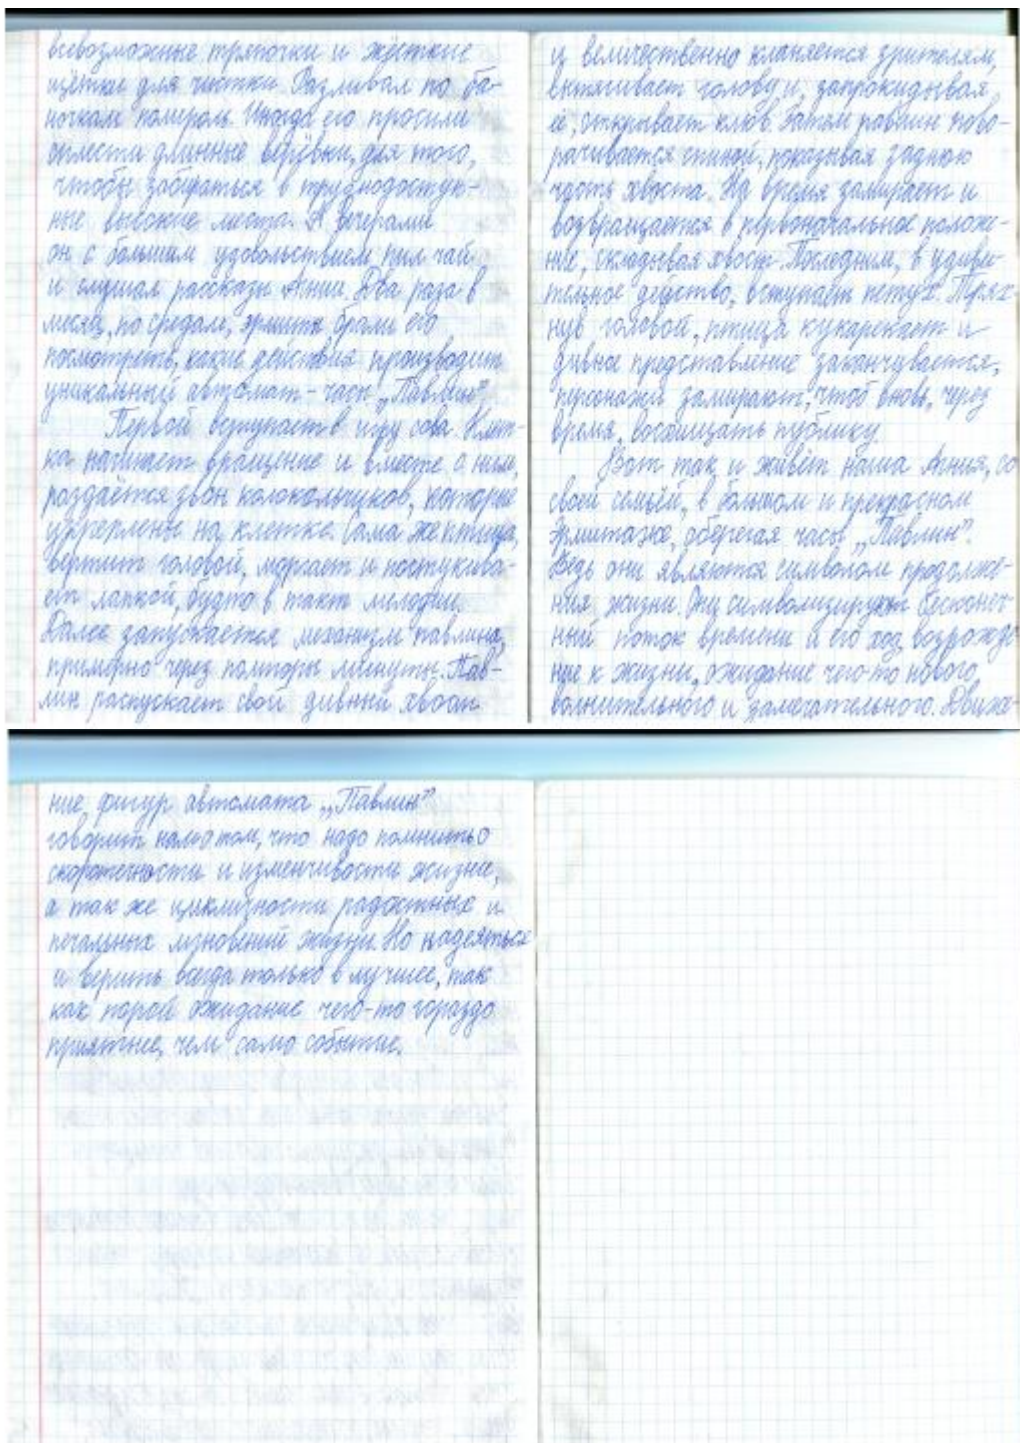 всевозможные тряпочки и жёсткие
щётки для чистки. Разливал по ба-
ночкам полироль. Иногда его просили
сплести длинные верёвки, для того,
чтобы забираться в труднодоступ-
ные высокие места. А вечерами
он с большим удовольствием пил чай
и слушал рассказы Агнии. Два раза в
месяц, по средам, эрмиты брали его
посмотреть, какие действия производит
уникальный автомат - часы „Павлин".
Первой вступает в игру сова. Клет-
ка начинает вращение и вместе с ним,
раздаётся звон колокольчиков, которые
укреплены на клетке. Сама же птица,
вертит головой, моргает и постукива-
ет лапкой, будто в такт мелодии.
Далее запускается механизм павлина,
примерно через полторы минуты. Пав-
лин распускает свой дивный хвост
и величественно кланяется зрителям,
вытягивает голову и, запрокидывая
её, открывает клюв. Затем павлин пово-
рачивается спиной, показывая заднюю
часть хвоста. На время замирает и
возвращается в первоначальное положе-
ние, складывая хвост. Последним, в удиви-
тельное действо, вступает петух. Трях-
нув головой, птица кукарекает и
дивное представление заканчивается,
персонажи замирают, чтоб вновь, через
время, восхищать публику.
Вот так и живёт наша Агния, со
своей семьёй, в большом и прекрасном
Эрмитаже, оберегая часы „Павлин".
Ведь они являются символом продолже-
ния жизни. Они символизируют бесконеч-
ный поток времени и его ход, возрожде
ние к жизни, ожидание чего-то нового,
волнительного и замечательного. Движе-
ние фигур автомата „Павлин"
говорит нам о том, что надо помнить о
скоротечности и изменчивости жизни,
а так же цикличности радостных и
печальных мгновений жизни. Но надеяться
и верить всегда только в лучшее, так
как порой ожидание чего-то гораздо
приятнее, чем само событие.